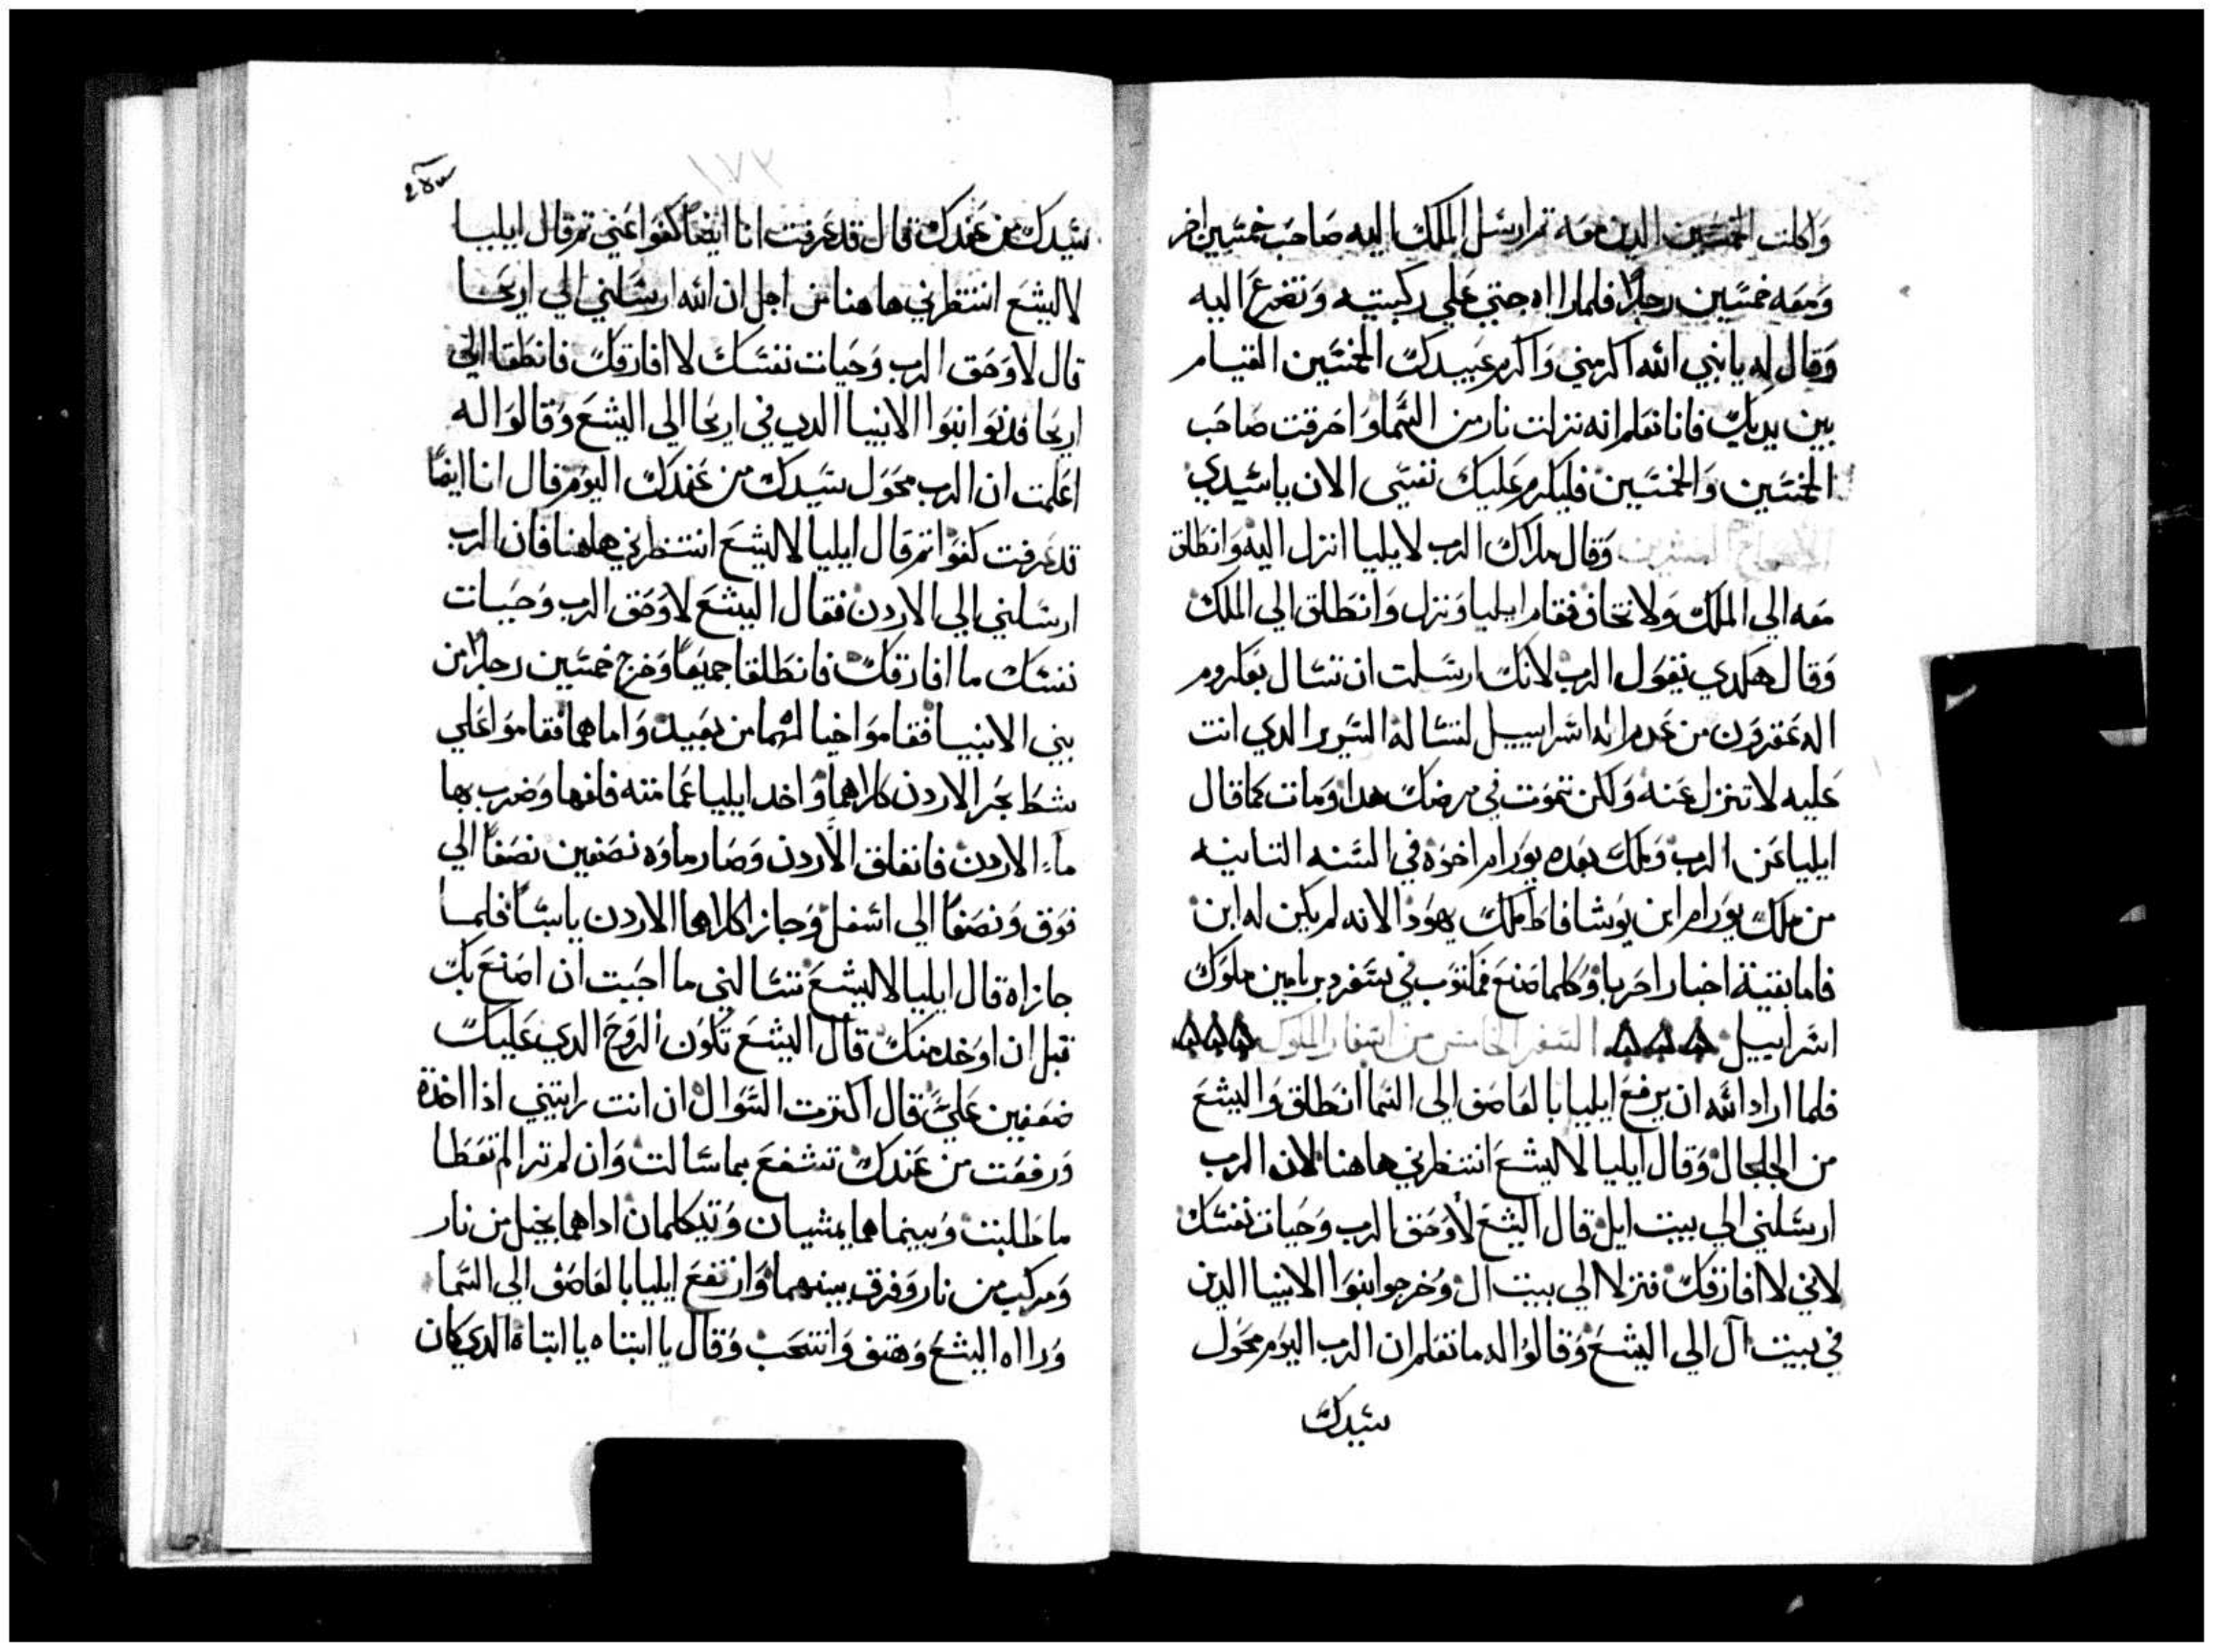 واكلت الخمسين الدين معه تم ارسل الملك اليه صاحب خمسين اخر
ومعه خمسين رجلاً فلما راه جتي علي ركبتيه وتضرع اليه
وقال له يا نبي الله اكرمني واكرم عبيدك الخمسين القيام
بين يديك فانا نعلم انه نزلت نار من السما واحرقت صاحب
الخمسين والخمسين فليكرم عليك نفسي الان يا سيدي
وقال ملاك الرب لايليا انزل اليه وانطلق
معه الي الملك ولا تخاف فقام ايليا ونزل وانطلق الي الملك
وقال هكدي يقول الرب لانك ارسلت ان تسال بعلروم
اله عقرون من عدم اله اسراييل لتساله السرير الدي انت
عليه لا تنزل عنه ولكن تموت في مرضك هدا ومات كما قال
ايليا عن الرب وملك بعده يورام اخوه في السنه التانيه
من ملك يورام ابن يوشافاط ملك يهودا لانه لم يكن له ابن
فاما بقية اخبار احزيا وكلما صنع فمكتوب في سفر دبريامين ملوك
اسراييل السفر الخامس من اسفار الملوك
فلما اراد الله ان يرفع ايليا بالعاصف الي السما انطلق واليشع
من الجلجال وقال ايليا لاليشع انتظرني هاهنا لان الرب
ارسلني الي بيت ايل قال اليشع لا وحق الرب وحيات نفسك
لاني لا افارقك فنزلا الي بيت ال وخرجوا بنوا الانبيا الدين
في بيت ال الي اليشع وقالوا له ما تعلم ان الرب اليوم محول
سيدك
١٧٣
سيدك من عندك قال قد عرفت انا ايضاً كفوا عني تم قال ايليا
لاليشع انتظرني هاهنا من اجل ان الله ارسلني الي اريحا
قال لا وحق الرب وحيات نفسك لا افارقك فانطلقا الي
اريحا فدنوا بنوا الانبيا الدي في اريحا الي اليشع وقالوا له
اعلمت ان الرب محول سيدك من عندك اليوم قال انا ايضاً
قد عرفت كفوا تم قال ايليا لاليشع انتظرني هاهنا فان الرب
ارسلني الي الاردن فقال اليشع لا وحق الرب وحيات
نفسك ما افارقك فانطلقا جميعاً وخرج خمسين رجلاً من
بني الانبيا فقاموا حيالهما من بعيد واما هما فقاموا علي
شط بحر الاردن كلاهما واخد ايليا عمامته فلفها وضرب بها
ماء الاردن فانفلق الاردن وصار ماوه نصفين نصفاً الي
فوق ونصفاً الي اسفل وجازا كلاهما الاردن يابساً فلما
جازاه قال ايليا لاليشع تسالني ما احببت ان اصنع بك
قبل ان اوخد منك قال اليشع تكون الروح الدي عليك
ضعفين عليَّ قال اكترت السوال ان انت رايتني اذا اخذة
ورفعت من عندك تشفع بما سالت وان لم ترا لم تعطا
ما طلبت وبينما هما يمشيان ويتكلمان ادا هما بخيل من نار
ومركب من نار وفرق بينهما وارتفع ايليا بالعاصف الي السما
وراه اليشع وهتف وانتحب وقال يا ابتاه يا ابتاه الدي كان